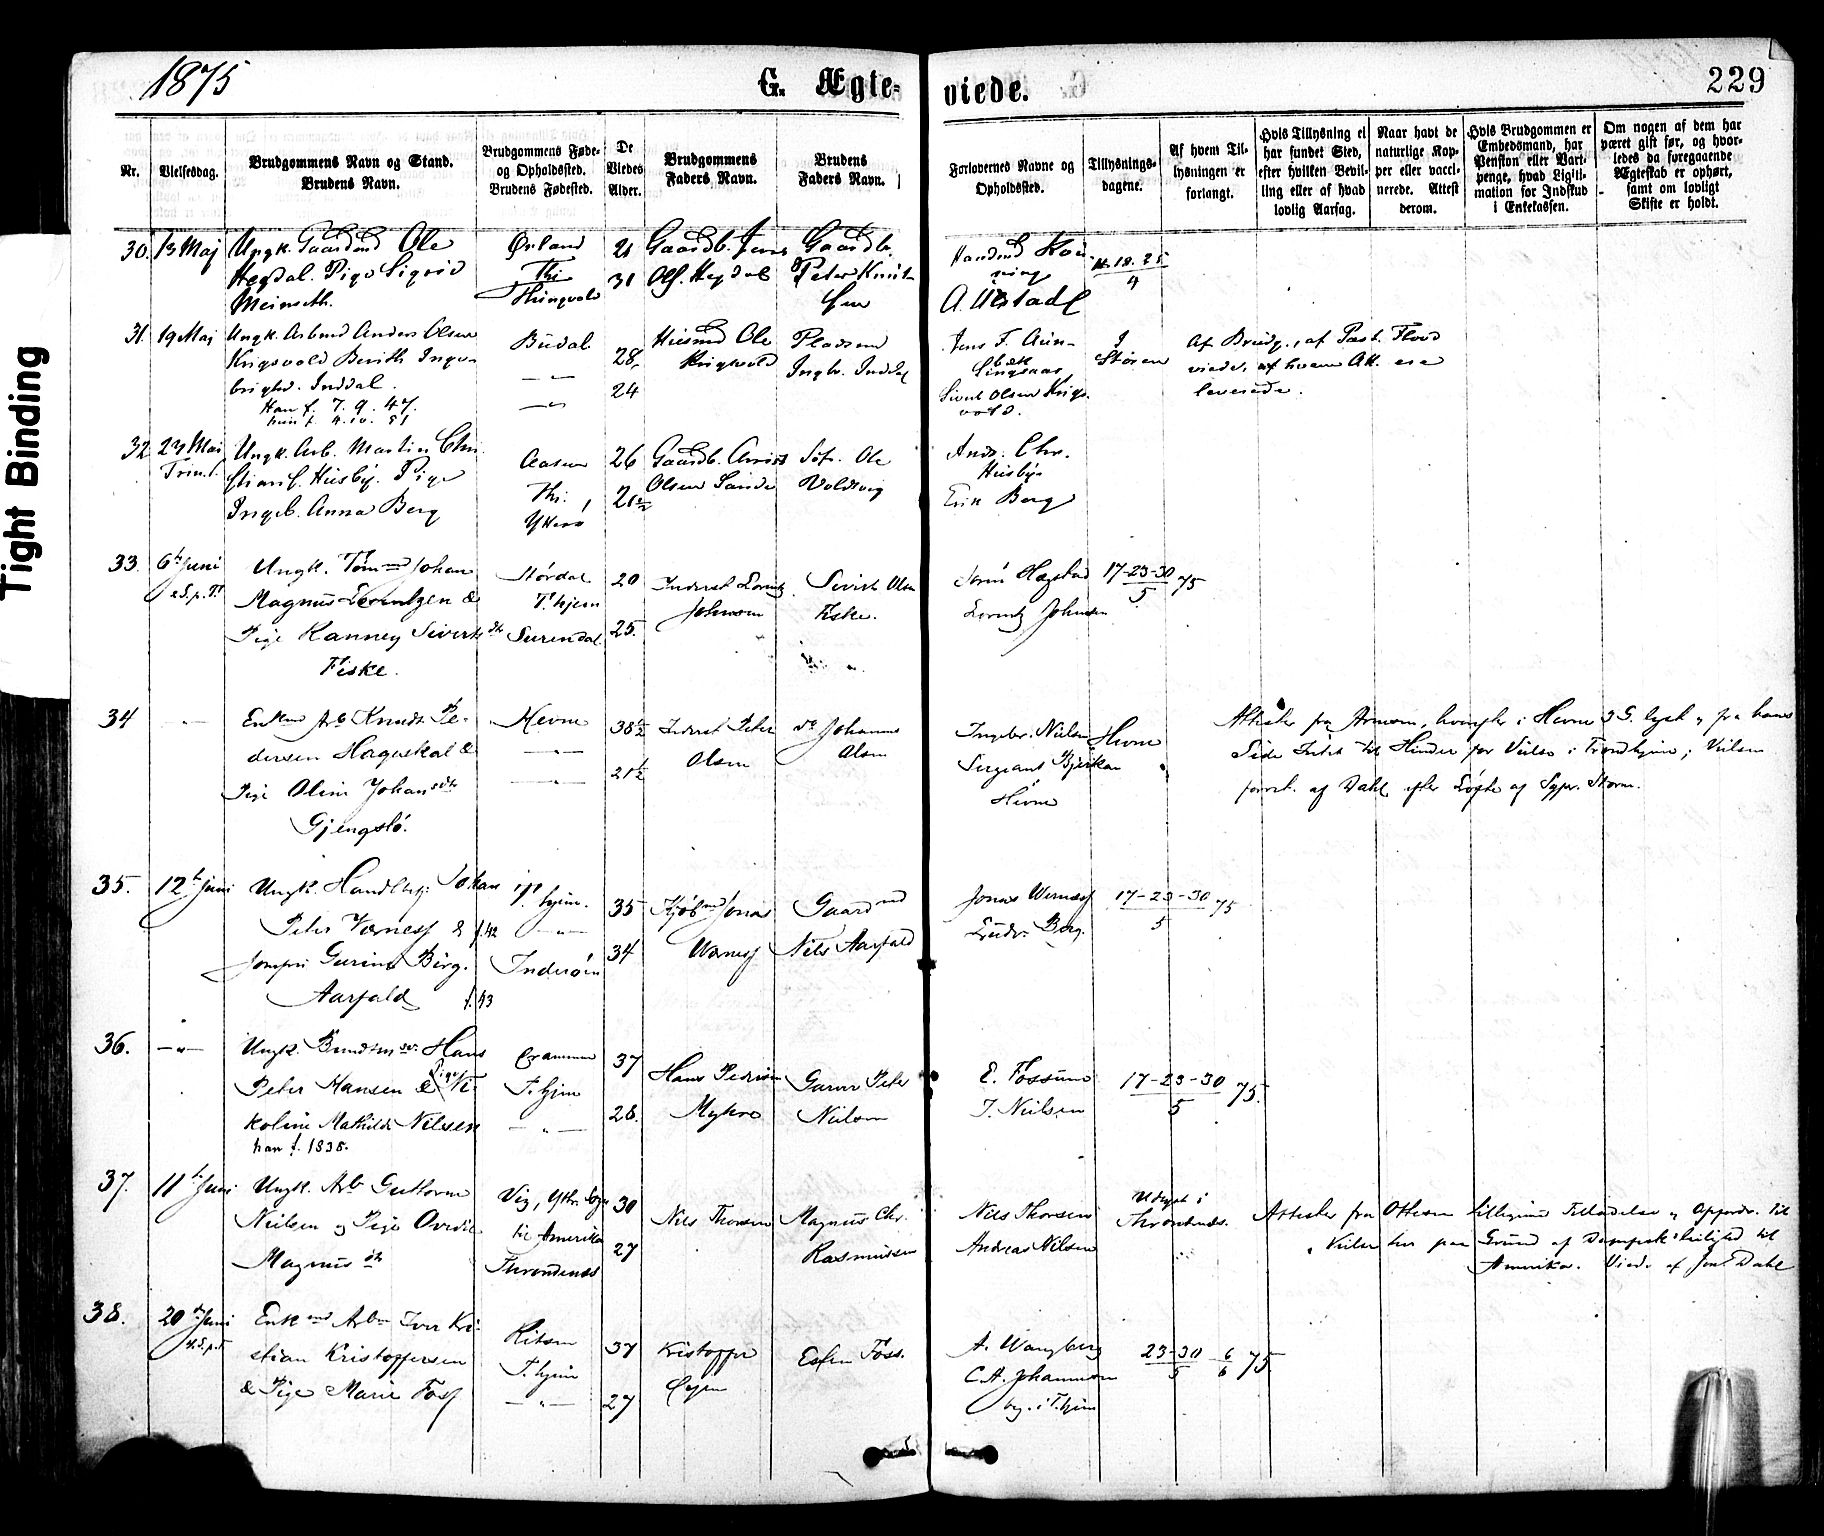 1875
G. Ægte-
viede.
229
Tight Binding
Nr.
Vielsesdag.
Brudgommens Navn og Stand.
Brudens Navn.
Brudgommens Føde-
og Opholdssted.
Brudens Fødested.
De
Viedes
Alder.
Brudgommens
Faders Navn.
Brudens
Faders Navn.
Forlovernes Navne og
Opholdssted.
Tillysnings-
dagene.
Af hvem Til-
lysningen er
forlangt.
Hvis Tillysning ei
har fundet Sted,
efter hvilken Bevil-
ling eller af hvad
lovlig Aarsag.
Naar havt de
naturlige Kop-
per eller vacci-
nerede. Attest
derom.
Hvis Brudgommen er
Embedsmand, har
Pension eller Vart-
penge, hvad Ligiti-
mation for Indskud
i Enkekassen.
Om nogen af dem har
været gift før, og hvor-
ledes da foregaaende
Ægteskab er ophørt,
samt om lovligt
Skifte er holdt.
30. 13 Maj
Ungk. Gaardmd Ole
Hegdal. Pige Sigrid
Meinseth.
Ørland
Thi
Thingvold
21
31
Gaardb. Jens
Ols. Hegdal
Gaardb.
Peter Knut-
sen
A. Ulstad
18. 25
4
31. 19 Maj
Ungk. Arbmd Anders Olsen
Krigsvold Berith Inge-
brigtsd. Inddal.
Han f. 7. 9. 47.
hun f. 4. 10. 51
Budal
— " —
— " —
28,
24
Husmd Ole
Krigsvold
Pladsmd
Ingbr. Inddal
Jens F. Aun-
Singsaas
Sivert Olsen Krigs-
vold.
I
Støren
Af Brudg., af Past. Flod
viede, af hvem Att. ere
leverede.
32 23 Maj
Trin.
Ungk. Arb. Martin Chri
stians. Husby. Pige
Ingeb. Anna Berg
Aasen
Thi.
Ytterø
26
21½
Gaardb.
Olsen Sande
Ole
Voldsvig
Andr. Chr.
Husby
Erik Berg
33. 6te Juni
2 S. p. Tr
Ungk. Tømmd Johan
Magnus Lorentzen &
Pige Ranney Siverts dtr
Fiske.
Størdal
T.hjem
Surendal
20
25.
Inderst Lorentz
Johnsen
"
Sivert Olsen
Fiske.
"
Hegstad
Lorentz Johnsen
17-23-30
5 75
34 — " —
Enkmd Arb Knudt Pe-
dersen Hageskal &
Pige Oline Johansdtr
Gjengstø.
Hevne
— " —
— " —
38½
21½
Inderst Peter
Olsen
do Johannes
Olsen
Ingebr. Nielsen
Sergeant Bjerkan
Hevne
Hevne
Attester fra
Side Intet til Hinder for Vielse i Trondhjem; Vielsen
forret. af Dahl efter Løfte af Sgpr. Storm.
35. 12te Juni
Ungk. Handlsbetj. Johan
Peter Værness & f. 42
Jomfru Gurine Berg.
Aarfald f. 43
T.hjem.
— " —
Inderøen
35
34
Kjøbmd Jonas
Værness
Gaardmd
Nils Aarfald
Jonas Værness
Ludv. Berg.
17-23-30
5 75
36. — " —
Ungk. Hans
Peter Hansen & Pige Ni-
koline Mathilde Nilssen
han f. 1838.
T.hjem
— " —
37
28.
Hans Pedersen
Myhre
Garver Peter
Nielsen
E. Fossum
J. Nielsen
17-23-30
5 75.
37. 11te Juni
Ungk. Arb Guttorm
Nielsen og Pige Ovedie
Magnusdtr
Vig, Ytr. Sogn
til Amerika
Throndenæs
30
27
Nils Thorsen
Magnus Chr.
Rasmussen
Nils Thorsen
Andreas Nilsen
Udlyst i
Throndenæs.
Attester fra Ottesen
Vielse her paa Grund af Dampsk. leilighed til
Amerika. Viede af Jens Dahl
38. 20de Juni
4. S. p. T
Enkmd Arbm Iver Kri-
stian Kristoffersen
& Pige Marie Foss
Ritsen
T.hjem
— " —
37
27
Kristoffer
Esten Foss.
A. Wangberg
C. A. Johannesen
bg. i T.hjem
23-30 6
5 6 75